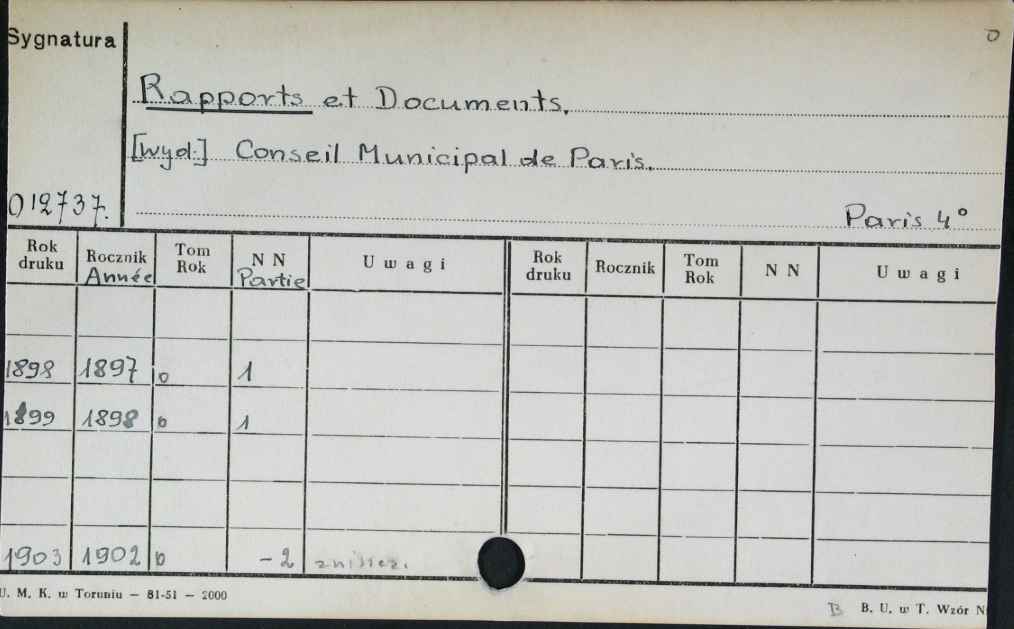 Sygnatura
Rapports et Documents.
[wyd:] Conseil Municipal de Paris.
012737.
Paris 4°
Rok druku Rocznik Année Tom Rok N N Partie Uwagi Rok druku Rocznik Tom Rok N N Uwagi
1898 1897 o 1
1899 1898 o 1
1903 1902 o - 2
U. M. K. w Toruniu — 81-51 — 2000
B B. U. w T. Wzór N